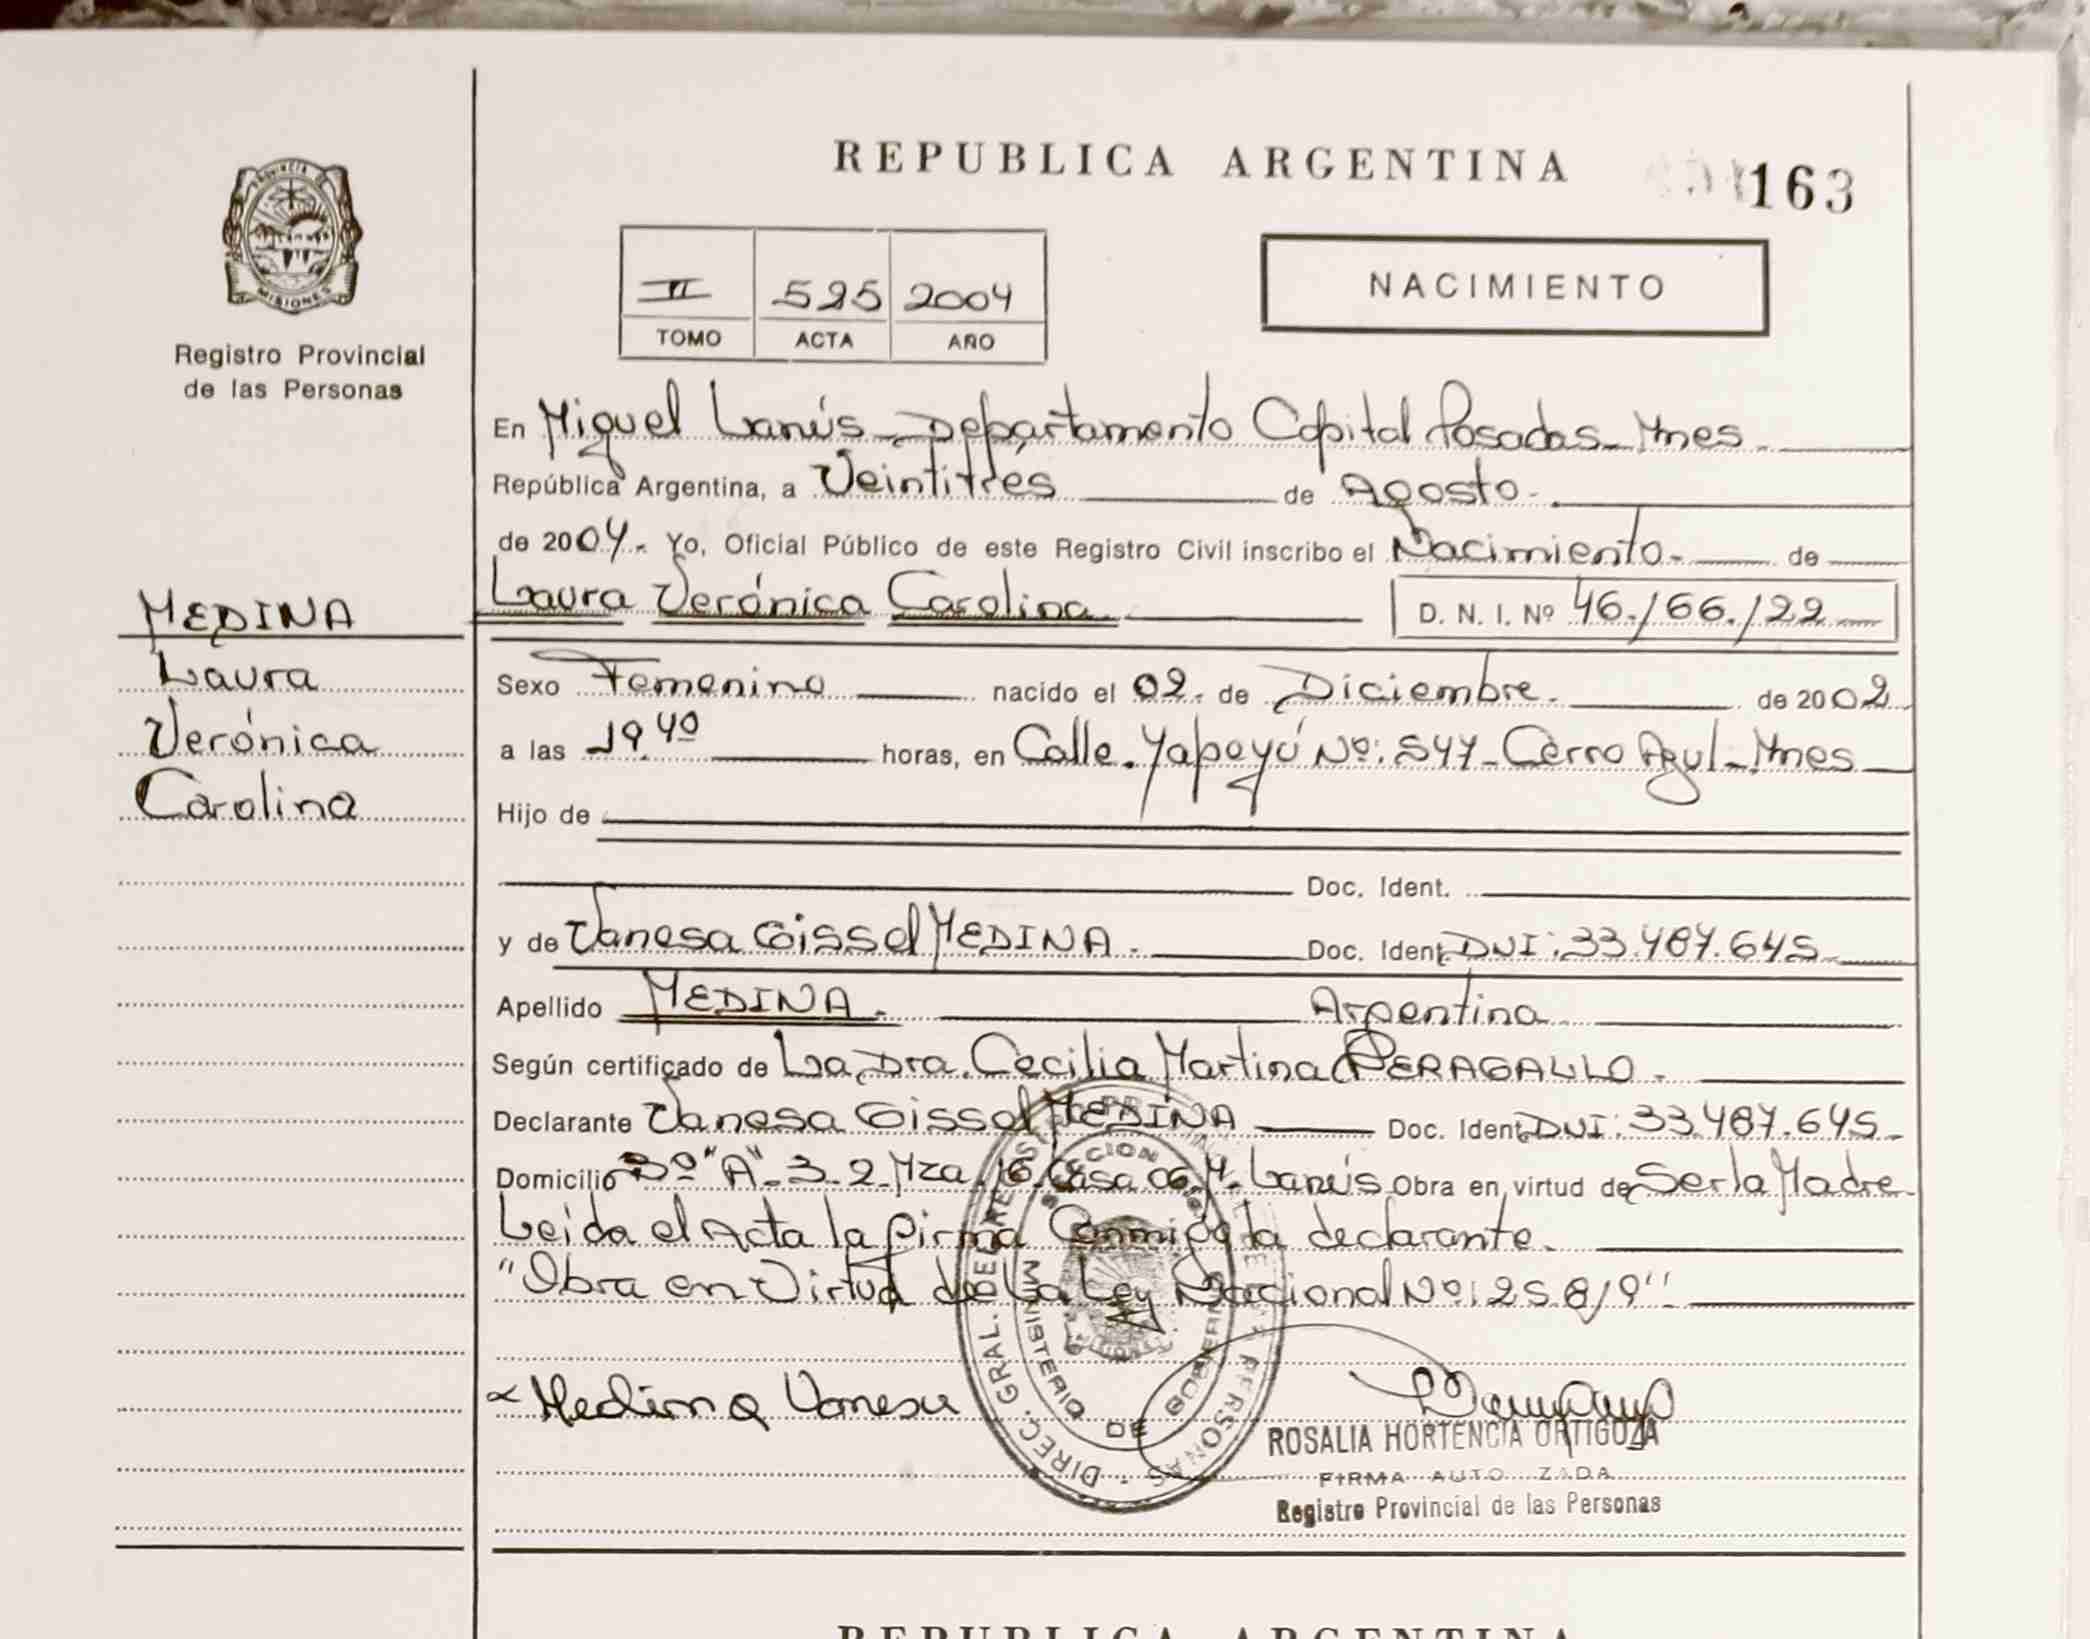 REPUBLICA ARGENTINA
163
PROVINCIA DE
MISIONES
Registro Provincial
de las Personas
II 525 2004
TOMO ACTA AÑO
NACIMIENTO
En Miguel Lanús - Departamento Capital Posadas - Mnes -
República Argentina, a Veintitrés de Agosto -
de 2004.- Yo, Oficial Público de este Registro Civil inscribo el Nacimiento - de
Laura Verónica Carolina D. N. I. Nº 46./66./22
MEDINA
Laura
Verónica
Carolina
Sexo Femenino nacido el 02. de Diciembre. de 2002
a las 19.40 horas, en Calle. Yapeyú Nº: 547 - Cerro Azul - Mnes
Hijo de
Doc. Ident.
y de Vanesa Gissel MEDINA. Doc. Ident. DNI: 33.487.645
Apellido MEDINA. Argentina
Según certificado de La Dra. Cecilia Martina PERAGALLO.
Declarante Vanesa Gissel MEDINA Doc. Ident. DNI: 33.487.645
Domicilio 3º "A" - 3.2. Mza. 16. Casa 06. M. Lanús Obra en virtud de Ser la Madre
Leida el Acta la firma Conmigo la declarante.
"Obra en Virtud de La Ley Nacional Nº: 25.819"
Medina Vanesa
DIREC. GRAL. DEL REGISTRO PERSONAS
MINISTERIO DE GOBIERNO
ROSALIA HORTENCIA ORTIGOZA
FIRMA AUTO ZADA
Registro Provincial de las Personas
REPUBLICA ARGENTINA